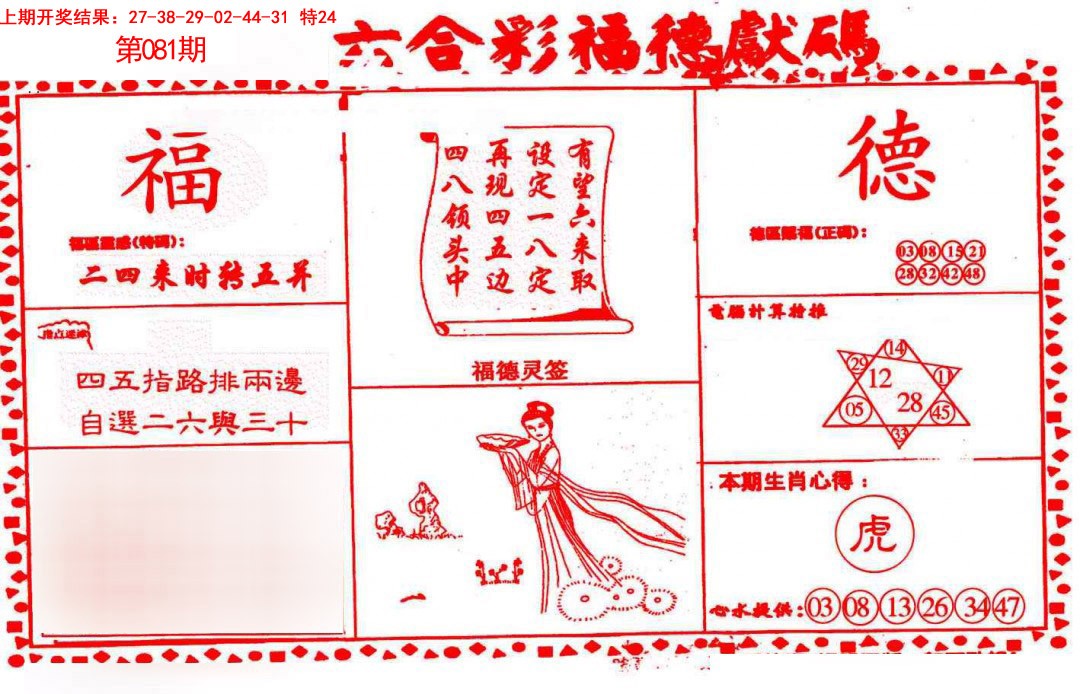 上期开奖结果：27-38-29-02-44-31 特24
第081期
六合彩福德獻碼
福
福區靈感(特碼)：
二四来时转五并
指点迷津
四五指路排兩邊
自選二六與三十
有望六来取
设定一八定
再现四五边
四八领头中
福德灵签
一
德
德區賜福(正碼)：
03 08 15 21
28 32 42 48
電腦計算特推
14
29 12 1
05 28 45
33
本期生肖心得：
虎
心水提供：03 08 13 26 34 47